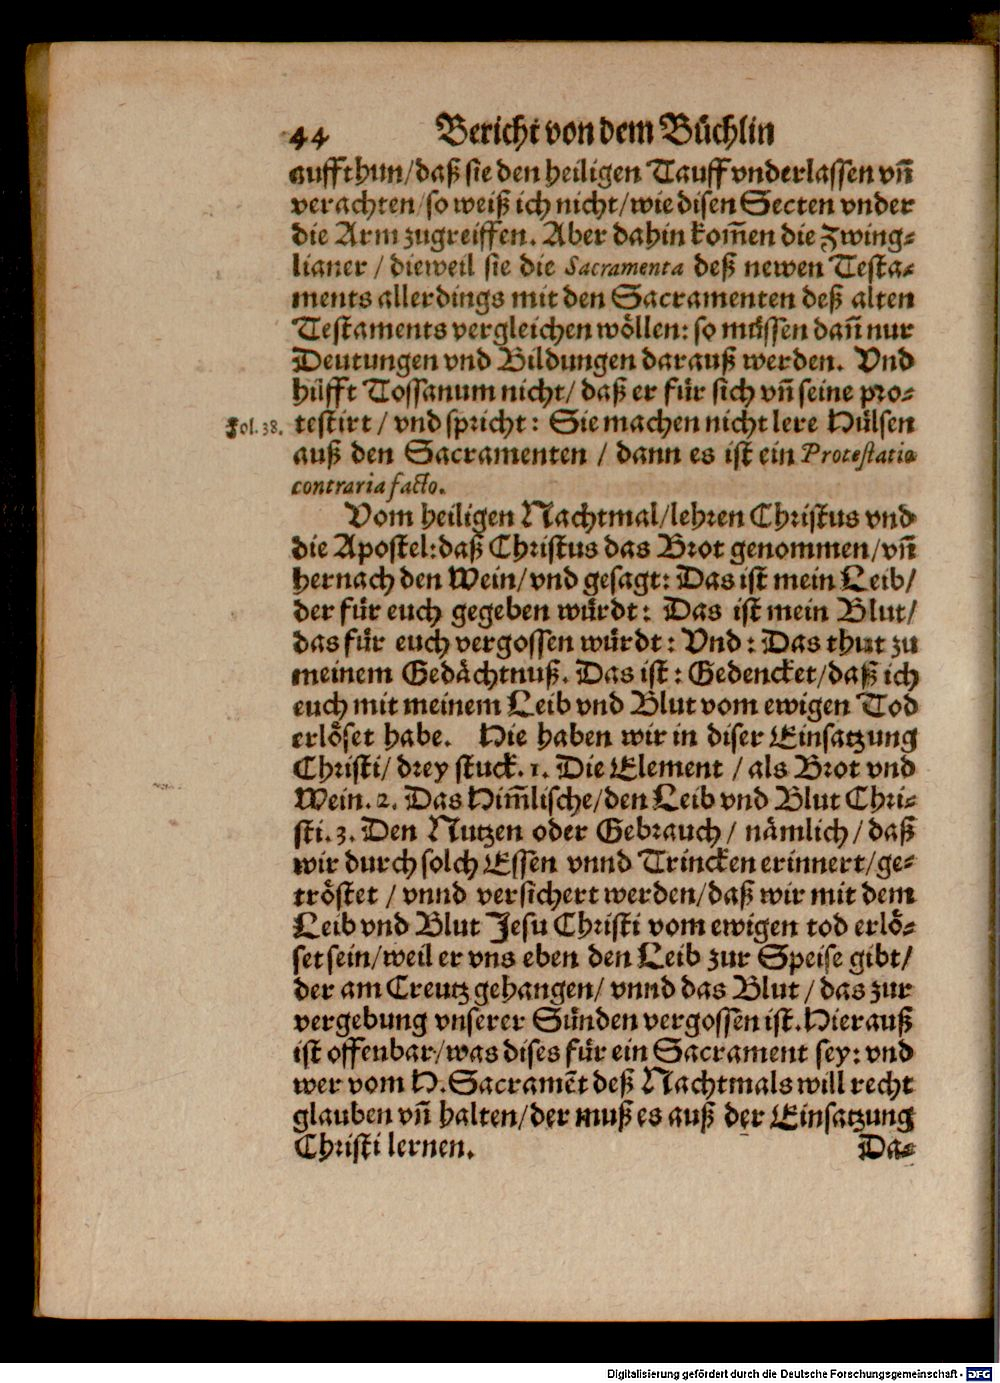 44 Bericht von dem Büchlin
auffthun/daß sie den heiligen Tauff vnderlassen vñ
verachten/so weiß ich nicht/wie disen Secten vnder
die Arm zugreiffen. Aber dahin kom̃en die Zwing-
lianer / dieweil sie die Sacramenta deß newen Testa-
ments allerdings mit den Sacramenten deß alten
Testaments vergleichen wöllen: so müssen dañ nur
Deutungen vnd Bildungen darauß werden. Vnd
hilfft Tossanum nicht/ daß er für sich vñ seine pro-
Fol. 38. testirt / vnd spricht: Sie machen nicht lere Hülsen
auß den Sacramenten / dann es ist ein Protestatio
contraria facto.
Vom heiligen Nachtmal/lehren Christus vnd
die Apostel:daß Christus das Brot genommen/vñ
hernach den Wein/vnd gesagt: Das ist mein Leib/
der für euch gegeben würdt: Das ist mein Blut/
das für euch vergossen würdt: Vnd: Das thut zu
meinem Gedächtnuß. Das ist: Gedencket/daß ich
euch mit meinem Leib vnd Blut vom ewigen Tod
erlöset habe. Hie haben wir in diser Einsatzung
Christi/ drey stuck. 1. Die Element / als Brot vnd
Wein. 2. Das Him̃lische/den Leib vnd Blut Chri-
sti. 3. Den Nutzen oder Gebrauch / nämlich / daß
wir durch solch Essen vnnd Trincken erinnert/ge-
tröstet / vnnd versichert werden/daß wir mit dem
Leib vnd Blut Jesu Christi vom ewigen tod erlö-
set sein/weil er vns eben den Leib zur Speise gibt/
der am Creutz gehangen/ vnnd das Blut / das zur
vergebung vnserer Sünden vergossen ist. Hierauß
ist offenbar/was dises für ein Sacrament sey: vnd
wer vom H. Sacramẽt deß Nachtmals will recht
glauben vñ halten/der muß es auß der Einsatzung
Christi lernen. Da-
Digitalisierung gefördert durch die Deutsche Forschungsgemeinschaft - DFG